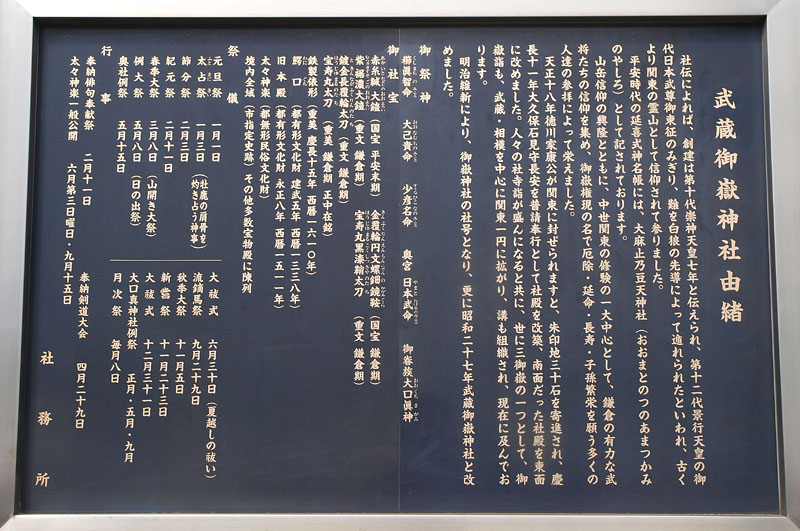 武蔵御嶽神社由緒
社伝によれば、創建は第十代崇神天皇七年と伝えられ、第十二代景行天皇の御
代日本武尊御東征のみぎり、難を白狼の先導によって遁れられたといわれ、古く
より関東の霊山として信仰されて参りました。
平安時代の延喜式神名帳には、大麻止乃豆天神社（おおまとのつのあまつかみ
のやしろ）として記されております。
山岳信仰の興隆とともに、中世関東の修験の一大中心として、鎌倉の有力な武
将たちの信仰を集め、御嶽権現の名で厄除・延命・長寿・子孫繁栄を願う多くの
人達の参拝によって栄えました。
天正十八年徳川家康公が関東に封ぜられますと、朱印地三十石を寄進され、慶
長十一年大久保石見守長安を普請奉行として社殿を改築、南面だった社殿を東面
に改めました。人々の社寺詣が盛んになると共に、世に三御嶽の一つとして、御
嶽詣も、武蔵・相模を中心に関東一円に拡がり、講も組織され、現在に及んでお
ります。
明治維新により、御嶽神社の社号となり、更に昭和二十七年武蔵御嶽神社と改
めました。
御祭神
櫛眞智命 大己貴命 少彦名命 奥宮 日本武命 御眷族大口眞神
御社宝
赤糸縅大鎧（国宝 平安末期） 金覆輪円文螺鈿鏡鞍（国宝 鎌倉期）
紫裾濃大鎧（重文 鎌倉期） 宝寿丸黒漆鞘太刀（重文 鎌倉期）
鍍金長覆輪太刀（重文 鎌倉期）
宝寿丸太刀（重美 鎌倉期 正中在銘）
鉄製俵形（重美 慶長十五年 西暦一六一〇年）
鰐口（都有形文化財 建武五年 西暦一三三八年）
旧本殿（都有形文化財 永正八年 西暦一五一一年）
太々神楽（都無形民俗文化財）
境内全域（市指定史跡）その他多数宝物殿に陳列
祭儀
元旦祭 一月一日
太占祭 一月三日（牡鹿の肩骨を灼き占う神事）
節分祭 二月三日
紀元祭 二月十一日
春季大祭 三月八日（山開き大祭）
例大祭 五月八日（日の出祭）
奥社例祭 五月十五日
大祓式 六月三十日（夏越しの祓い）
流鏑馬祭 九月二十九日
秋季大祭 十一月五日
新嘗祭 十一月二十三日
大祓式 十二月三十一日
大口真神社例祭 正月・五月・九月
月次祭 毎月八日
行事
奉納俳句奉献祭 二月十一日 奉納剣道大会 四月二十九日
太々神楽一般公開 六月第三日曜日・九月十五日
社務所